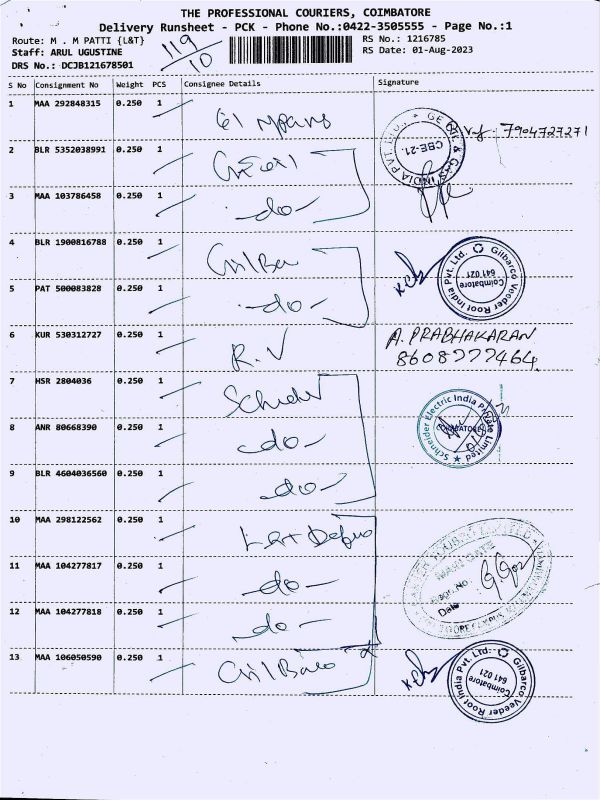 THE PROFESSIONAL COURIERS, COIMBATORE
Delivery Runsheet - PCK - Phone No.:0422-3505555 - Page No.:1
Route: M . M PATTI {L&T}
Staff: ARUL UGUSTINE
DRS No.: DCJB121678501
119/10
RS No.: 1216785
RS Date: 01-Aug-2023
S No Consignment No Weight PCS Consignee Details Signature
1 MAA 292848315 0.250 1
7904727271
CBE-21.
2 BLR 5352038991 0.250 1
3 MAA 103786458 0.250 1 -do-
4 BLR 1900816788 0.250 1
Gilbarco Veeder Root India Pvt. Ltd.
Coimbatore
641 021
5 PAT 500083828 0.250 1 -do-
6 KUR 530312727 0.250 1 R.V
A. PRABHAKARAN
8608777464.
7 HSR 2804036 0.250 1
Schneider Electric India Private Limited
COIMBATORE
8 ANR 80668390 0.250 1 -do-
9 BLR 4604036560 0.250 1 -do-
10 MAA 298122562 0.250 1
MAIN GATE
Date
11 MAA 104277817 0.250 1 -do-
12 MAA 104277818 0.250 1 -do-
13 MAA 106050590 0.250 1
Gilbarco Veeder Root India Pvt. Ltd.
Coimbatore
641 021